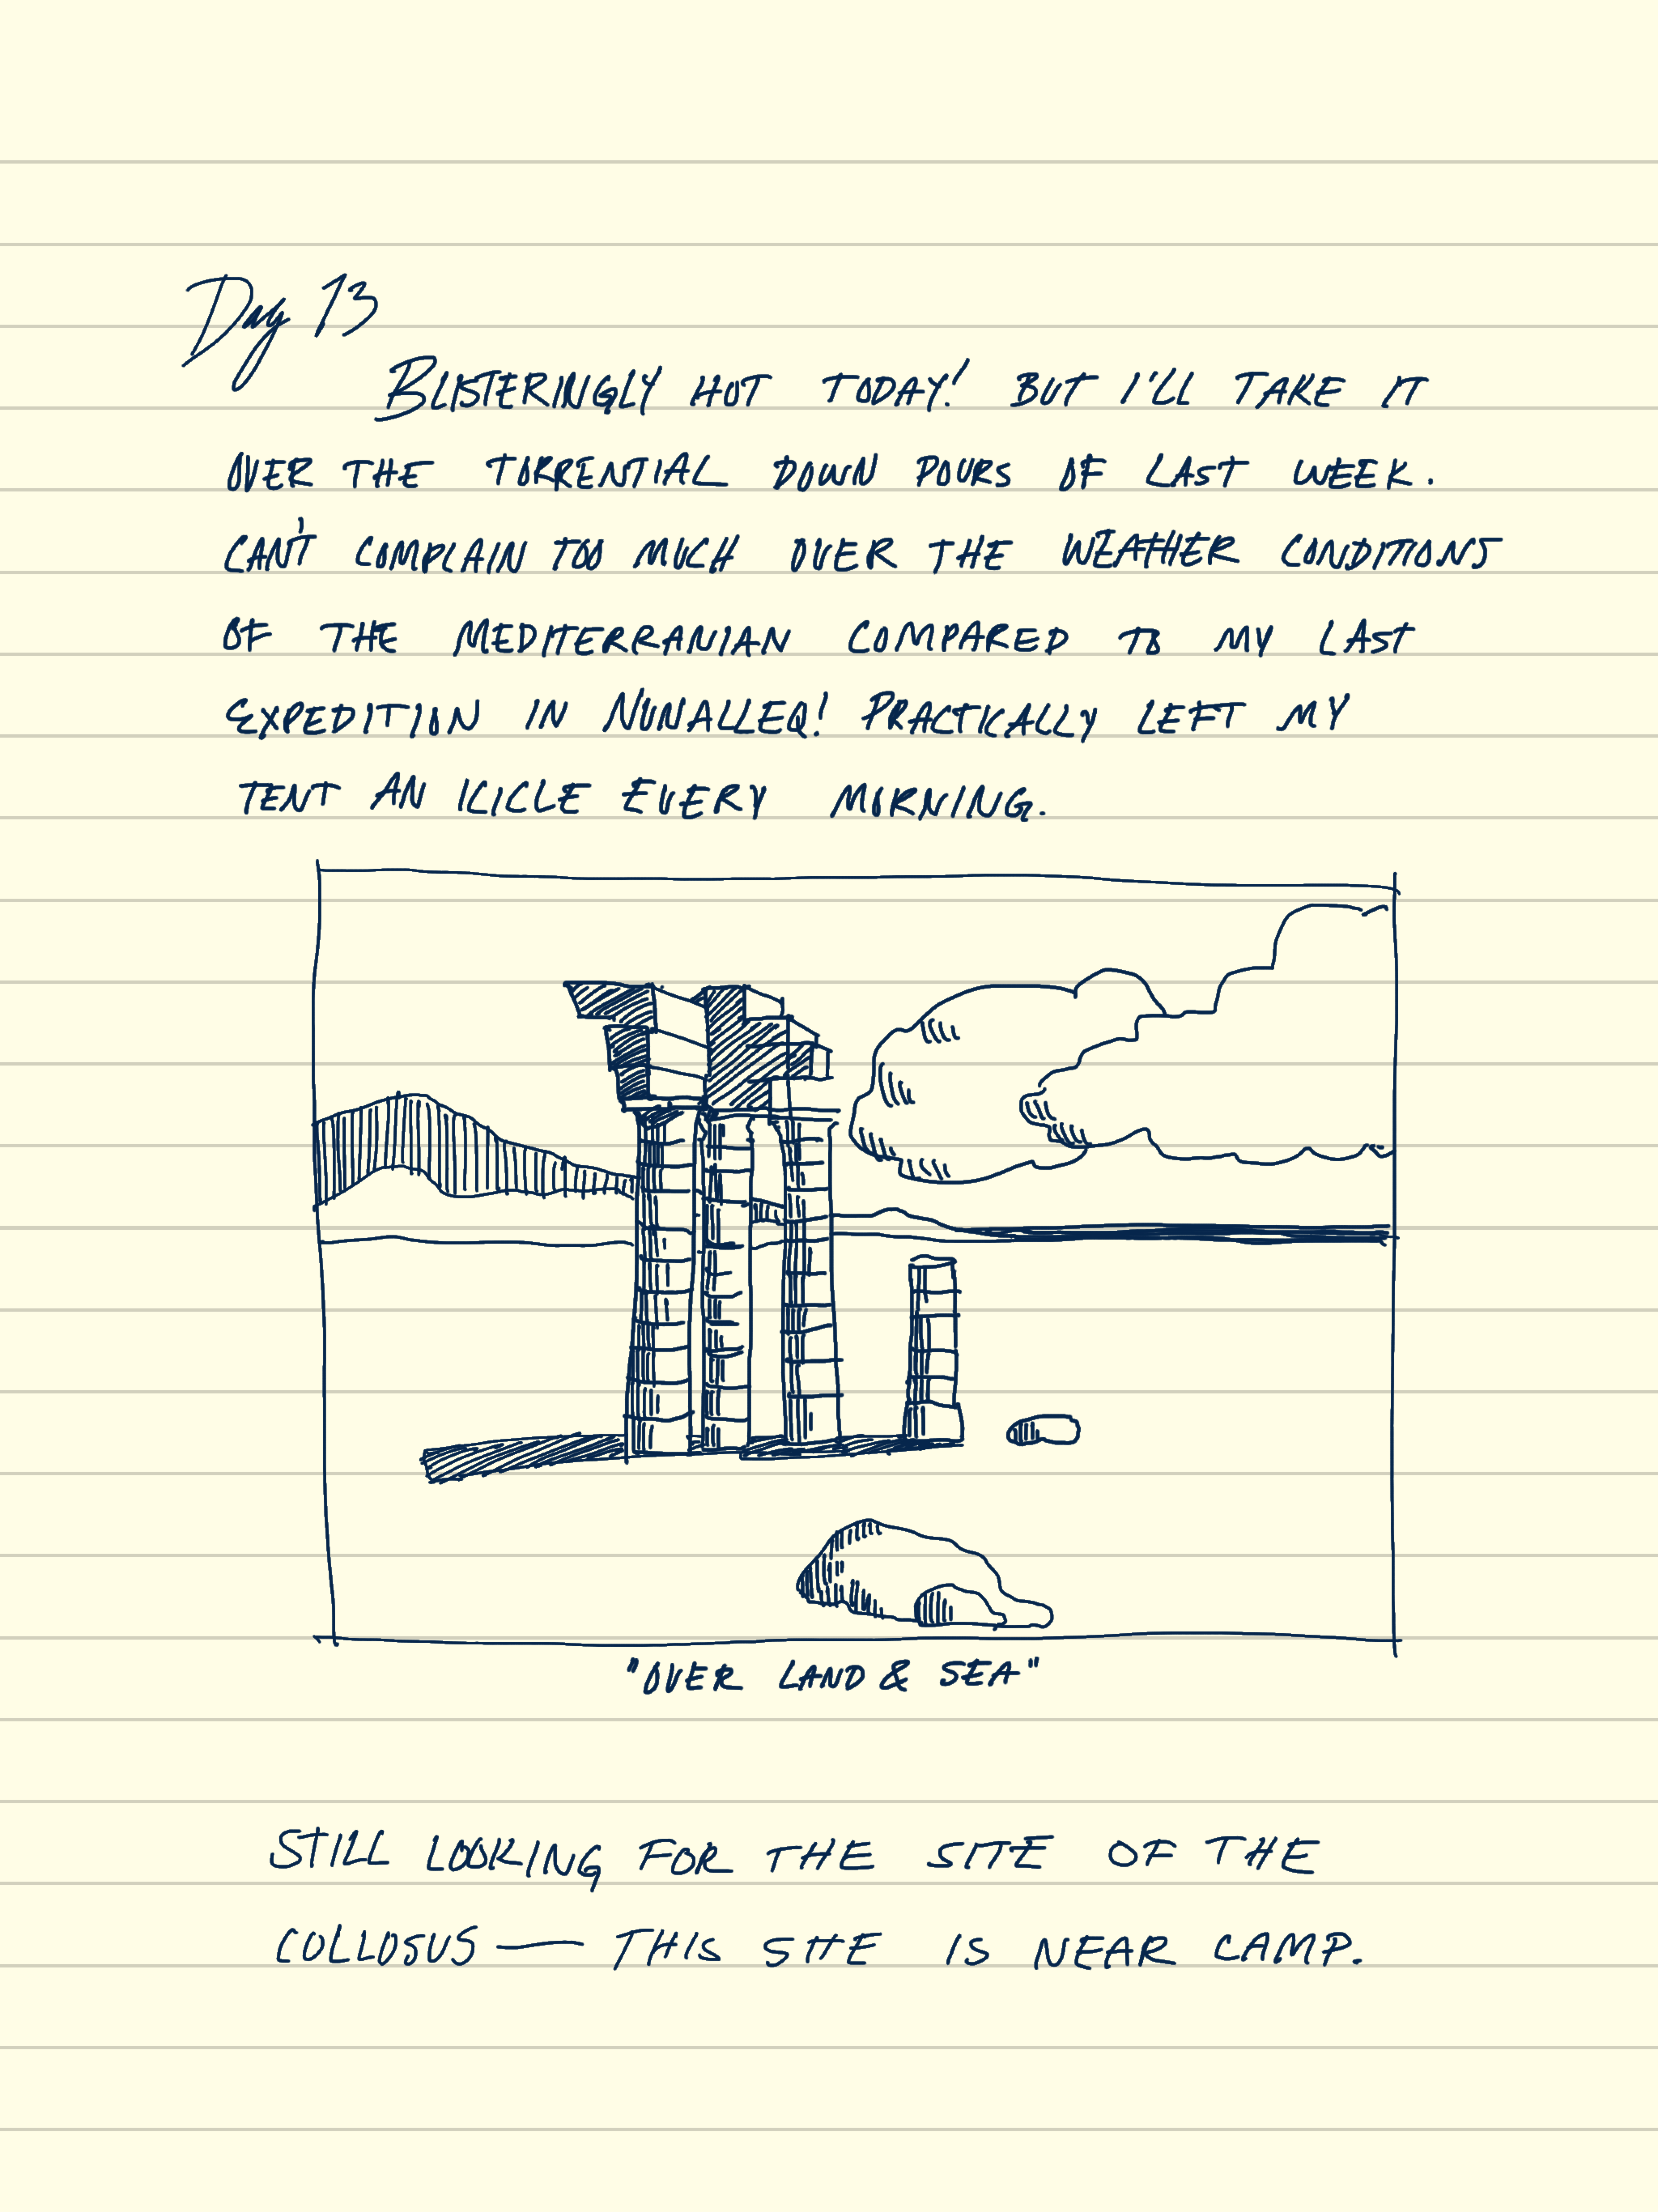 Day 13
BLISTERINGLY HOT TODAY! BUT I'LL TAKE IT
OVER THE TORRENTIAL DOWN POURS OF LAST WEEK.
CAN'T COMPLAIN TOO MUCH OVER THE WEATHER CONDITIONS
OF THE MEDITERRANIAN COMPARED TO MY LAST
EXPEDITION IN NUNALLEQ! PRACTICALLY LEFT MY
TENT AN ICICLE EVERY MORNING.
"OVER LAND & SEA"
STILL LOOKING FOR THE SITE OF THE
COLLOSUS — THIS SITE IS NEAR CAMP.